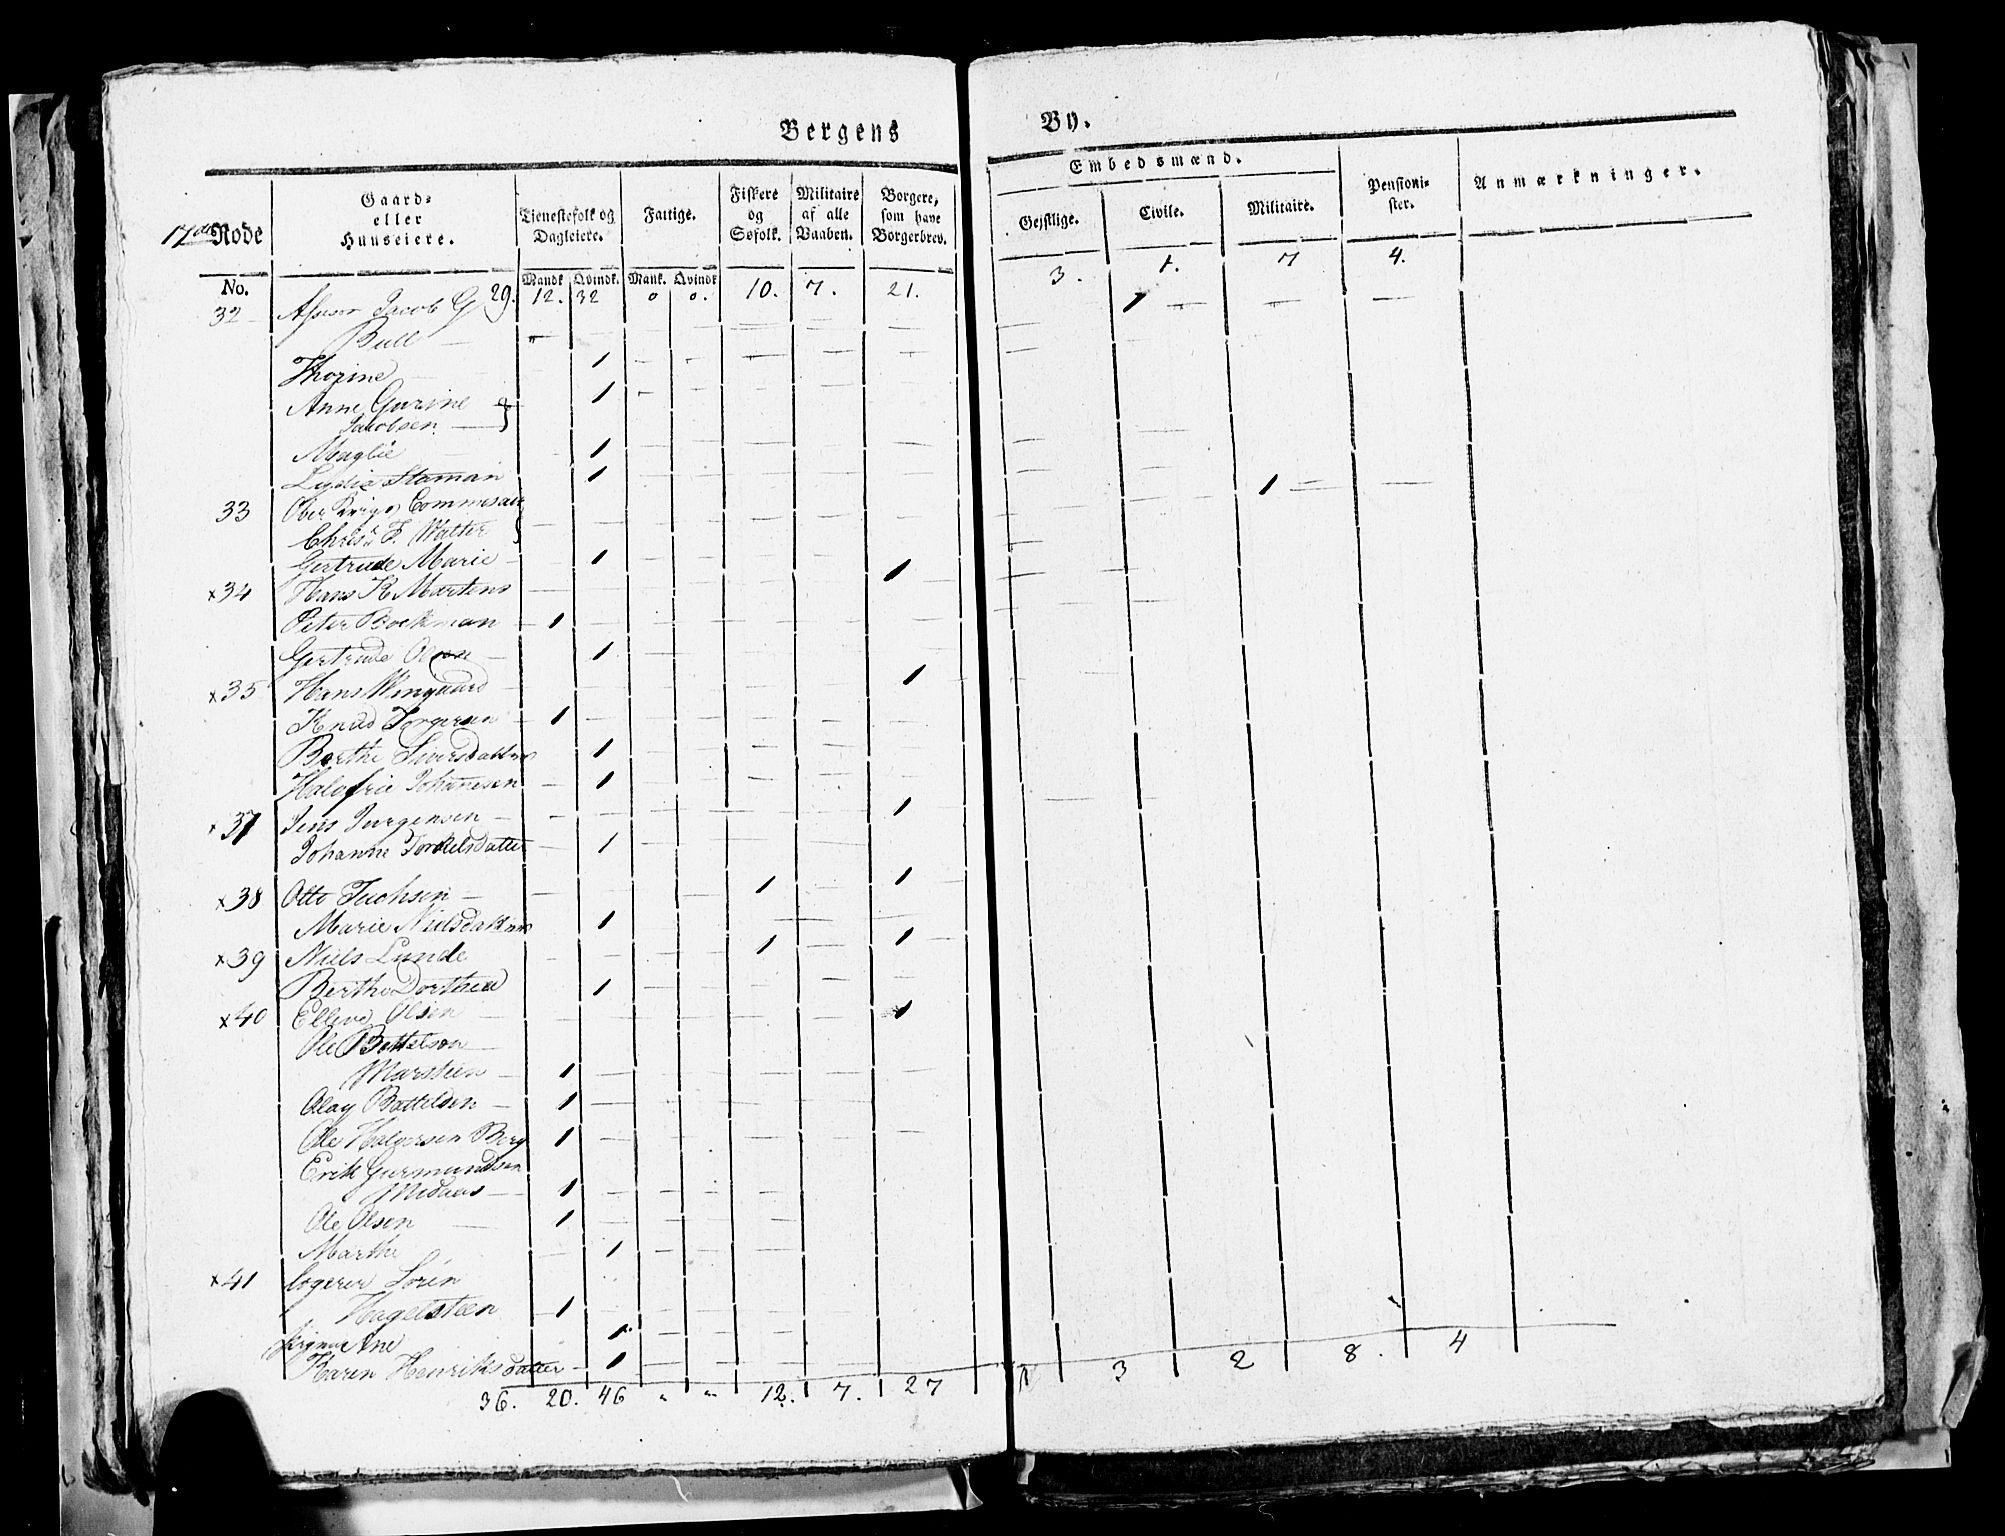 Bergens By.
17de Rode
No.
Gaard-
eller
Huuseiere.
Tienestefolk og
Dagleiere.
Mandk Qvindk.
Fattige.
Mank. Qvindk
Fiskere
og
Søfolk.
Militaire
af alle
Vaaben.
Borgere,
som have
Borgerbrev.
Embedsmænd.
Gejstlige. Civile. Militaire.
Pensioni-
ster.
Anmærkninger.
29. 12. 32 0 0. 10. 7. 21. 3. 1. 7 4.
32 Assessor Jacob G 1
Bull
Thorine 1
Anne Gurine 1
Jacobsen
Maglie 1
Lydia Staman 1
33 Ober Krigs Commisair 1
Chris. F. Walter
Gertrude Marie 1
x34 Hans K Martens 1
Peter Boekman 1
Gertrude Olsen 1
x35 Hans Wingaard 1
Knud Torgersen 1
Berthe Siversdatter 1
Johanesen 1
x37 Jens Jurgensen 1
Johanne Torkelsdatter 1
x38 Otto Tuchsen 1 1
Marie Nielsdatter 1
x39 Niels Lunde 1 1
Berthe Dorthea 1
x40 Ellevd Olsen 1
Ole Bottelson
Marsteen 1
Olay Bottelsen 1
Ole Halversen Berg 1
Erik Gurmundsen
Midaas 1
Ole Olsen 1
Marthe 1
x41 Lorin
Hagelsteen 1
Ane 1
Karen Henriksdatter 1
36. 20. 46 " " 12. 7. 27 3 2 8. 4